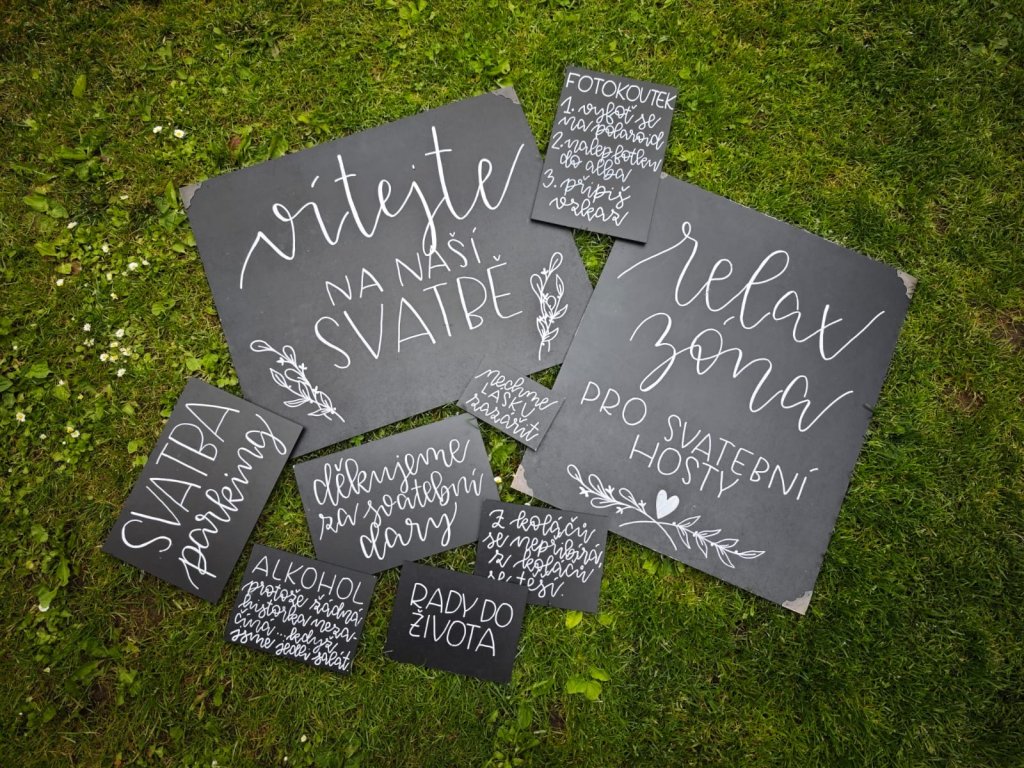 vítejte
NA NAŠÍ
SVATBĚ
FOTOKOUTEK
1. vyfoť se
na polaroid
2. nalep fotku
do alba
3. připiš
vzkaz
relax
zóna
PRO SVATEBNÍ
HOSTY
nechme
LÁSKU
zazářit
SVATBA
parking
děkujeme
za svatební
dary
Z koláčů
se nepřibírá,
z koláčů
se těší.
ALKOHOL
protože žádná
historka neza-
čína ...když
jsme jedli salát
RADY DO
ŽIVOTA